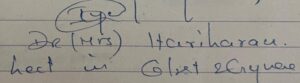 Dr (Mrs) Hariharan.
hect in Obst & Gynae